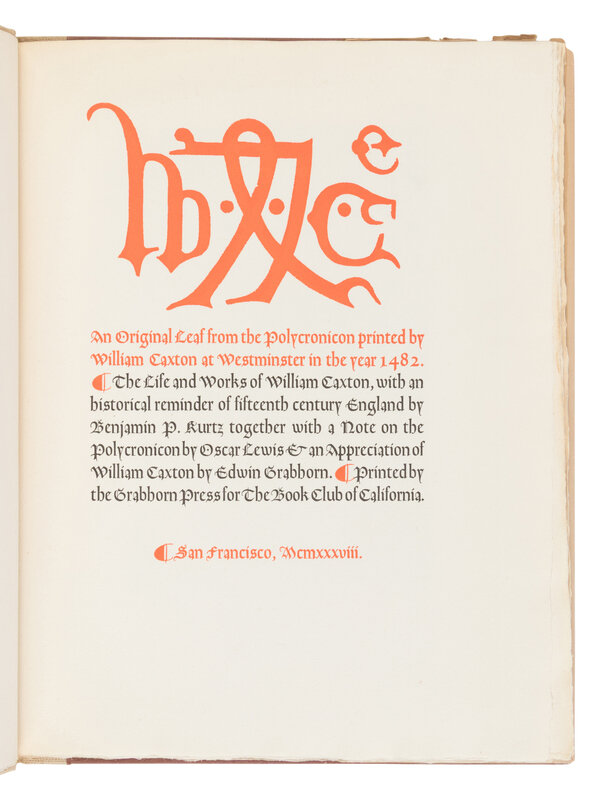 An Original Leaf from the Polycronicon printed by
William Caxton at Westminster in the year 1482.
The Life and Works of William Caxton, with an
historical reminder of fifteenth century England by
Benjamin P. Kurtz together with a Note on the
Polycronicon by Oscar Lewis & an Appreciation of
William Caxton by Edwin Grabhorn. Printed by
the Grabhorn Press for The Book Club of California.
San Francisco, Mcmxxxviii.